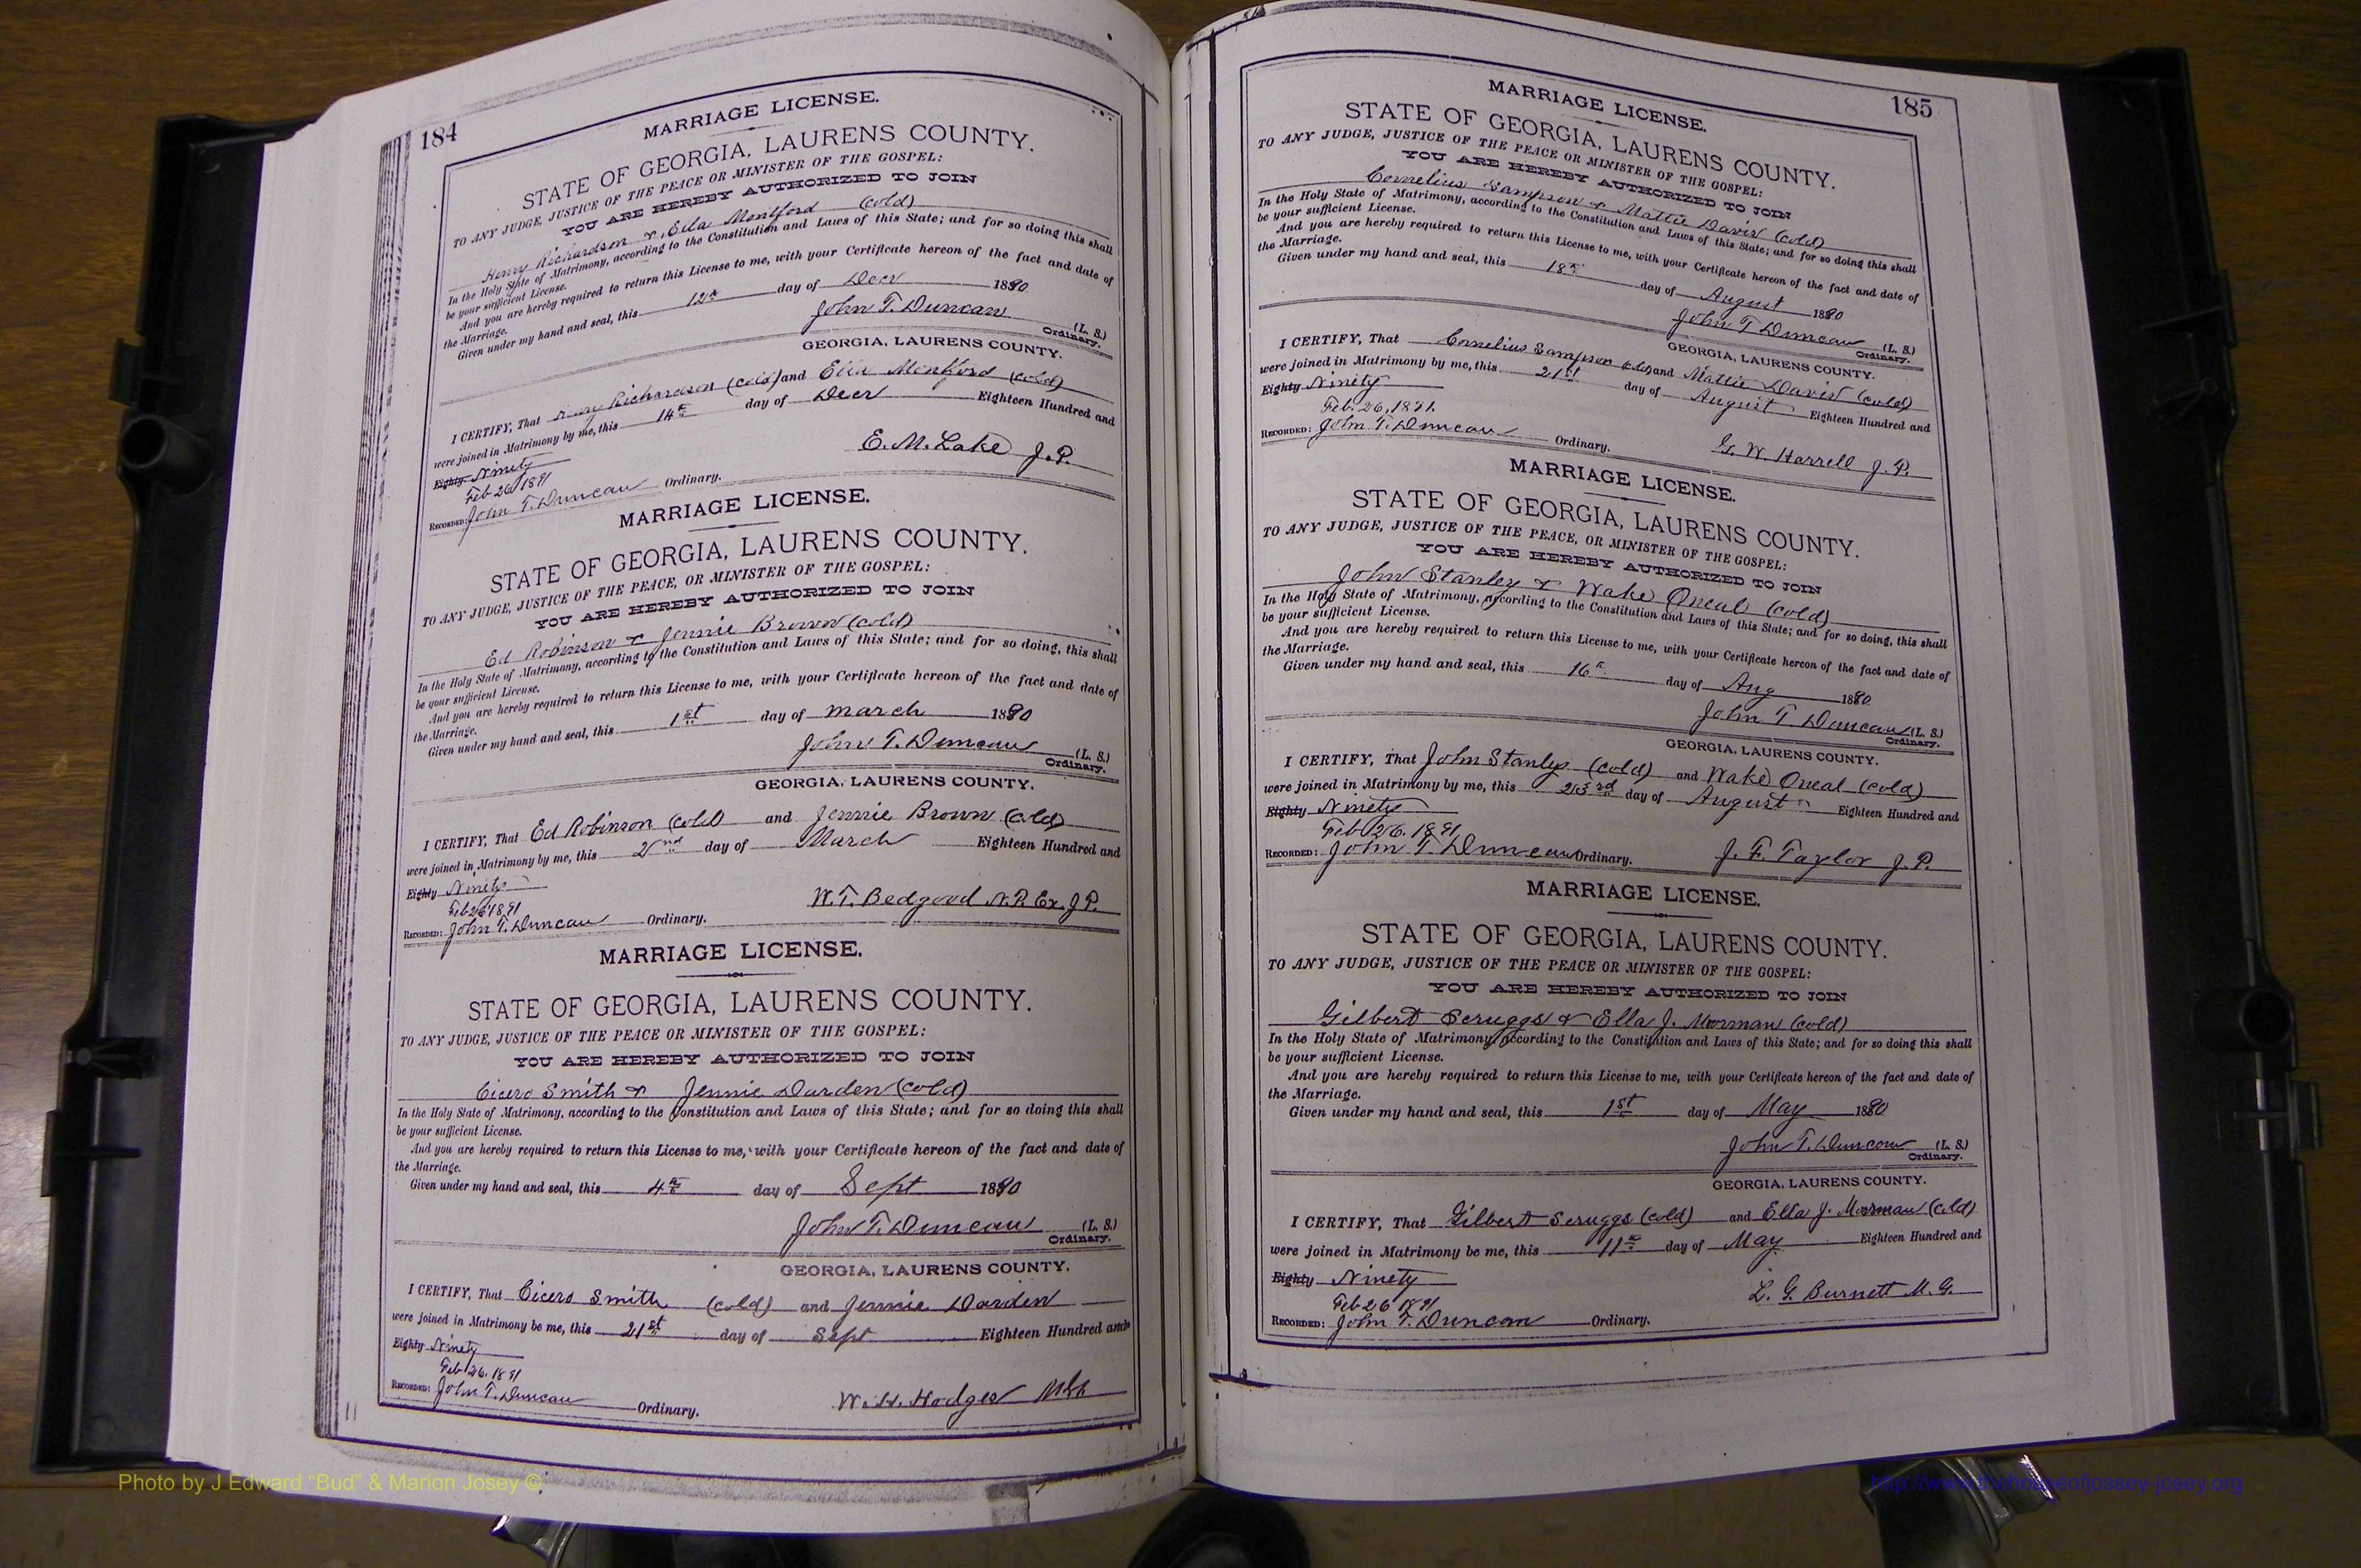 184
MARRIAGE LICENSE.
STATE OF GEORGIA, LAURENS COUNTY.
TO ANY JUDGE, JUSTICE OF THE PEACE OR MINISTER OF THE GOSPEL:
YOU ARE HEREBY AUTHORIZED TO JOIN
Henry Richardson & Ella Montford (cold)
In the Holy State of Matrimony, according to the Constitution and Laws of this State; and for so doing this shall
be your sufficient License.
And you are hereby required to return this License to me, with your Certificate hereon of the fact and date of
the Marriage.
Given under my hand and seal, this 12th day of Decr 1890
John T. Duncan (L. S.)
Ordinary.
GEORGIA, LAURENS COUNTY.
I CERTIFY, That Henry Richardson (cold) and Ella Montford (cold)
were joined in Matrimony by me, this 14th day of Decr Eighteen Hundred and
Eighty Ninety
E. M. Lake J. P.
Feb 26 1891
RECORDED: John T. Duncan Ordinary.
MARRIAGE LICENSE.
STATE OF GEORGIA, LAURENS COUNTY.
TO ANY JUDGE, JUSTICE OF THE PEACE, OR MINISTER OF THE GOSPEL:
YOU ARE HEREBY AUTHORIZED TO JOIN
Ed Robinson & Jennie Brown (cold)
In the Holy State of Matrimony, according to the Constitution and Laws of this State; and for so doing, this shall
be your sufficient License.
And you are hereby required to return this License to me, with your Certificate hereon of the fact and date of
the Marriage.
Given under my hand and seal, this 1st day of March 1890
John T. Duncan (L. S.)
Ordinary.
GEORGIA, LAURENS COUNTY.
I CERTIFY, That Ed Robinson (cold) and Jennie Brown (cold)
were joined in Matrimony by me, this 2nd day of March Eighteen Hundred and
Eighty Ninety
W. T. Bedgood N. P. Ex. J P.
Feb 26 1891
RECORDED: John T. Duncan Ordinary.
MARRIAGE LICENSE.
STATE OF GEORGIA, LAURENS COUNTY.
TO ANY JUDGE, JUSTICE OF THE PEACE OR MINISTER OF THE GOSPEL:
YOU ARE HEREBY AUTHORIZED TO JOIN
Cicero Smith & Jennie Darden (cold)
In the Holy State of Matrimony, according to the Constitution and Laws of this State; and for so doing this shall
be your sufficient License.
And you are hereby required to return this License to me, with your Certificate hereon of the fact and date of
the Marriage.
Given under my hand and seal, this 4th day of Sept 1890
John T. Duncan (L. S.)
Ordinary.
GEORGIA, LAURENS COUNTY.
I CERTIFY, That Cicero Smith (cold) and Jennie Darden
were joined in Matrimony be me, this 21st day of Sept Eighteen Hundred and
Eighty Ninety
Feb 26. 1891
RECORDED: John T. Duncan Ordinary.
W. H. Hodges
185
MARRIAGE LICENSE.
STATE OF GEORGIA, LAURENS COUNTY.
TO ANY JUDGE, JUSTICE OF THE PEACE OR MINISTER OF THE GOSPEL:
YOU ARE HEREBY AUTHORIZED TO JOIN
Cornelius Sampson & Mattie Davis (cold)
In the Holy State of Matrimony, according to the Constitution and Laws of this State; and for so doing this shall
be your sufficient License.
And you are hereby required to return this License to me, with your Certificate hereon of the fact and date of
the Marriage.
Given under my hand and seal, this 18th day of August 1890
John T Duncan (L. S.)
Ordinary.
GEORGIA, LAURENS COUNTY.
I CERTIFY, That Cornelius Sampson (cold) and Mattie Davis (cold)
were joined in Matrimony by me, this 21st day of August Eighteen Hundred and
Eighty Ninety
Feb. 26, 1891.
RECORDED: John T. Duncan Ordinary.
G. W. Harrell J. P.
MARRIAGE LICENSE.
STATE OF GEORGIA, LAURENS COUNTY.
TO ANY JUDGE, JUSTICE OF THE PEACE, OR MINISTER OF THE GOSPEL:
YOU ARE HEREBY AUTHORIZED TO JOIN
John Stanley & Wake Oneal (cold)
In the Holy State of Matrimony, according to the Constitution and Laws of this State; and for so doing, this shall
be your sufficient License.
And you are hereby required to return this License to me, with your Certificate hereon of the fact and date of
the Marriage.
Given under my hand and seal, this 16th day of Aug 1890
John T. Duncan (L. S.)
Ordinary.
GEORGIA, LAURENS COUNTY.
I CERTIFY, That John Stanley (cold) and Wake Oneal (cold)
were joined in Matrimony by me, this 23rd day of August Eighteen Hundred and
Eighty Ninety
Feb 26. 1891
RECORDED: John T. Duncan Ordinary.
J. F. Taylor J. P.
MARRIAGE LICENSE.
STATE OF GEORGIA, LAURENS COUNTY.
TO ANY JUDGE, JUSTICE OF THE PEACE OR MINISTER OF THE GOSPEL:
YOU ARE HEREBY AUTHORIZED TO JOIN
Gilbert Scruggs & Ella J. Moorman (cold)
In the Holy State of Matrimony, according to the Constitution and Laws of this State; and for so doing this shall
be your sufficient License.
And you are hereby required to return this License to me, with your Certificate hereon of the fact and date of
the Marriage.
Given under my hand and seal, this 1st day of May 1890
John T. Duncan (L. S.)
Ordinary.
GEORGIA, LAURENS COUNTY.
I CERTIFY, That Gilbert Scruggs (cold) and Ella J. Moorman (cold)
were joined in Matrimony be me, this 11th day of May Eighteen Hundred and
Eighty Ninety
L. G. Burnett M. G.
Feb 26 1891
RECORDED: John T. Duncan Ordinary.
Photo by J Edward “Bud” & Marion Josey ©
http://www.thehouseofjossey-josey.org